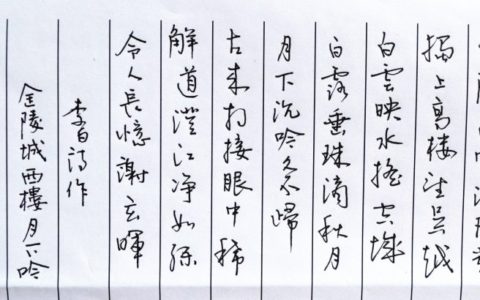 獨上高楼望吳越
白雲映水搖空城
白露垂珠滴秋月
月下沉吟久不歸
古来相接眼中稀
解道澄江净如練
令人長憶謝玄暉
李白詩作
金陵城西樓月下吟